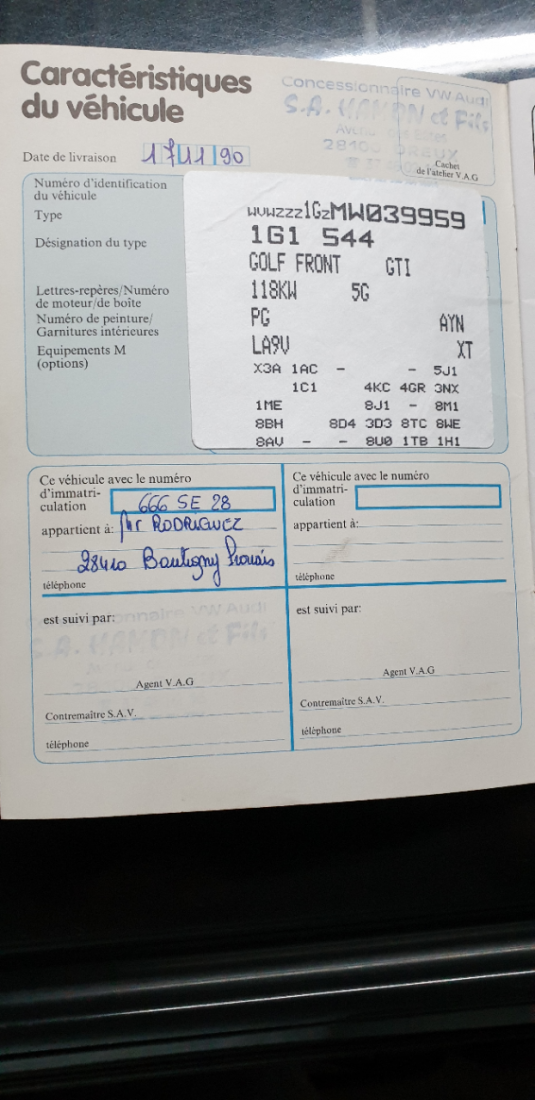 Caractéristiques
du véhicule
Concessionnaire VW Audi
S.A. HAMON et Fils
28100 DREUX
Cachet
de l'atelier V.A.G
Date de livraison 17 11 90
Numéro d'identification
du véhicule
WVWZZZ1GZMW039959
Type
1G1 544
Désignation du type
GOLF FRONT GTI
118KW 5G
Lettres-repères/Numéro
de moteur/de boîte
PG AYN
Numéro de peinture/
Garnitures intérieures
LA9V XT
Equipements M
(options)
X3A 1AC - - 5J1
1C1 4KC 4GR 3NX
1ME 8J1 - 8M1
8BH 8D4 3D3 8TC 8WE
8AV - - 8U0 1TB 1H1
Ce véhicule avec le numéro
d'immatri-
culation 666 SE 28
appartient à: Mr RODRIGUEZ
28410 Boutigny Prouais
téléphone
est suivi par:
Agent V.A.G
Contremaître S.A.V.
téléphone
Ce véhicule avec le numéro
d'immatri-
culation
appartient à:
téléphone
est suivi par:
Agent V.A.G
Contremaître S.A.V.
téléphone